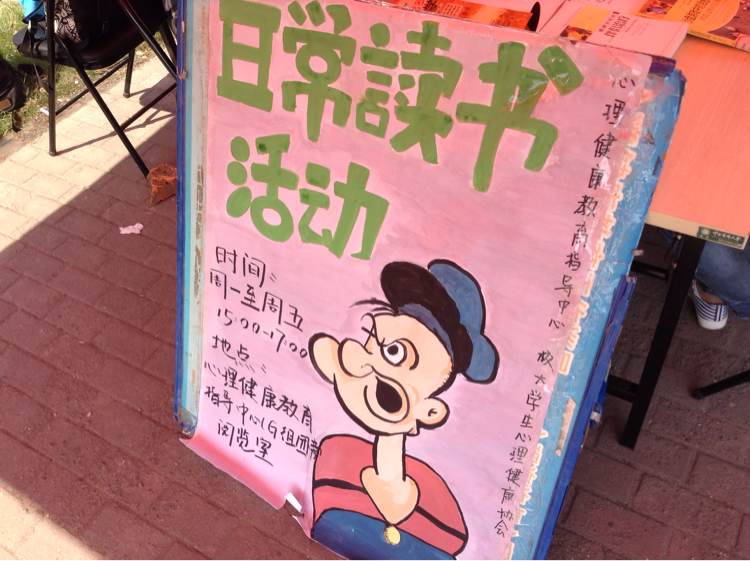 日常读书
活动
时间:
周一至周五
15:00-17:00
地点:
心理健康教育
指导中心G组团
阅览室
心理健康教育指导中心 校大学生心理健康协会